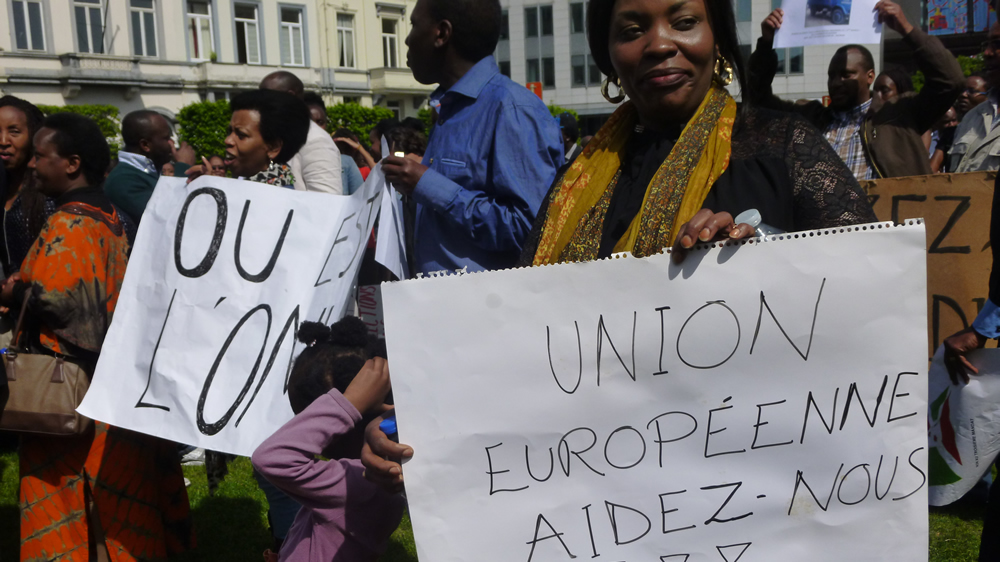 OU EST
L'ON
UNION
EUROPÉENNE
AIDEZ-NOUS